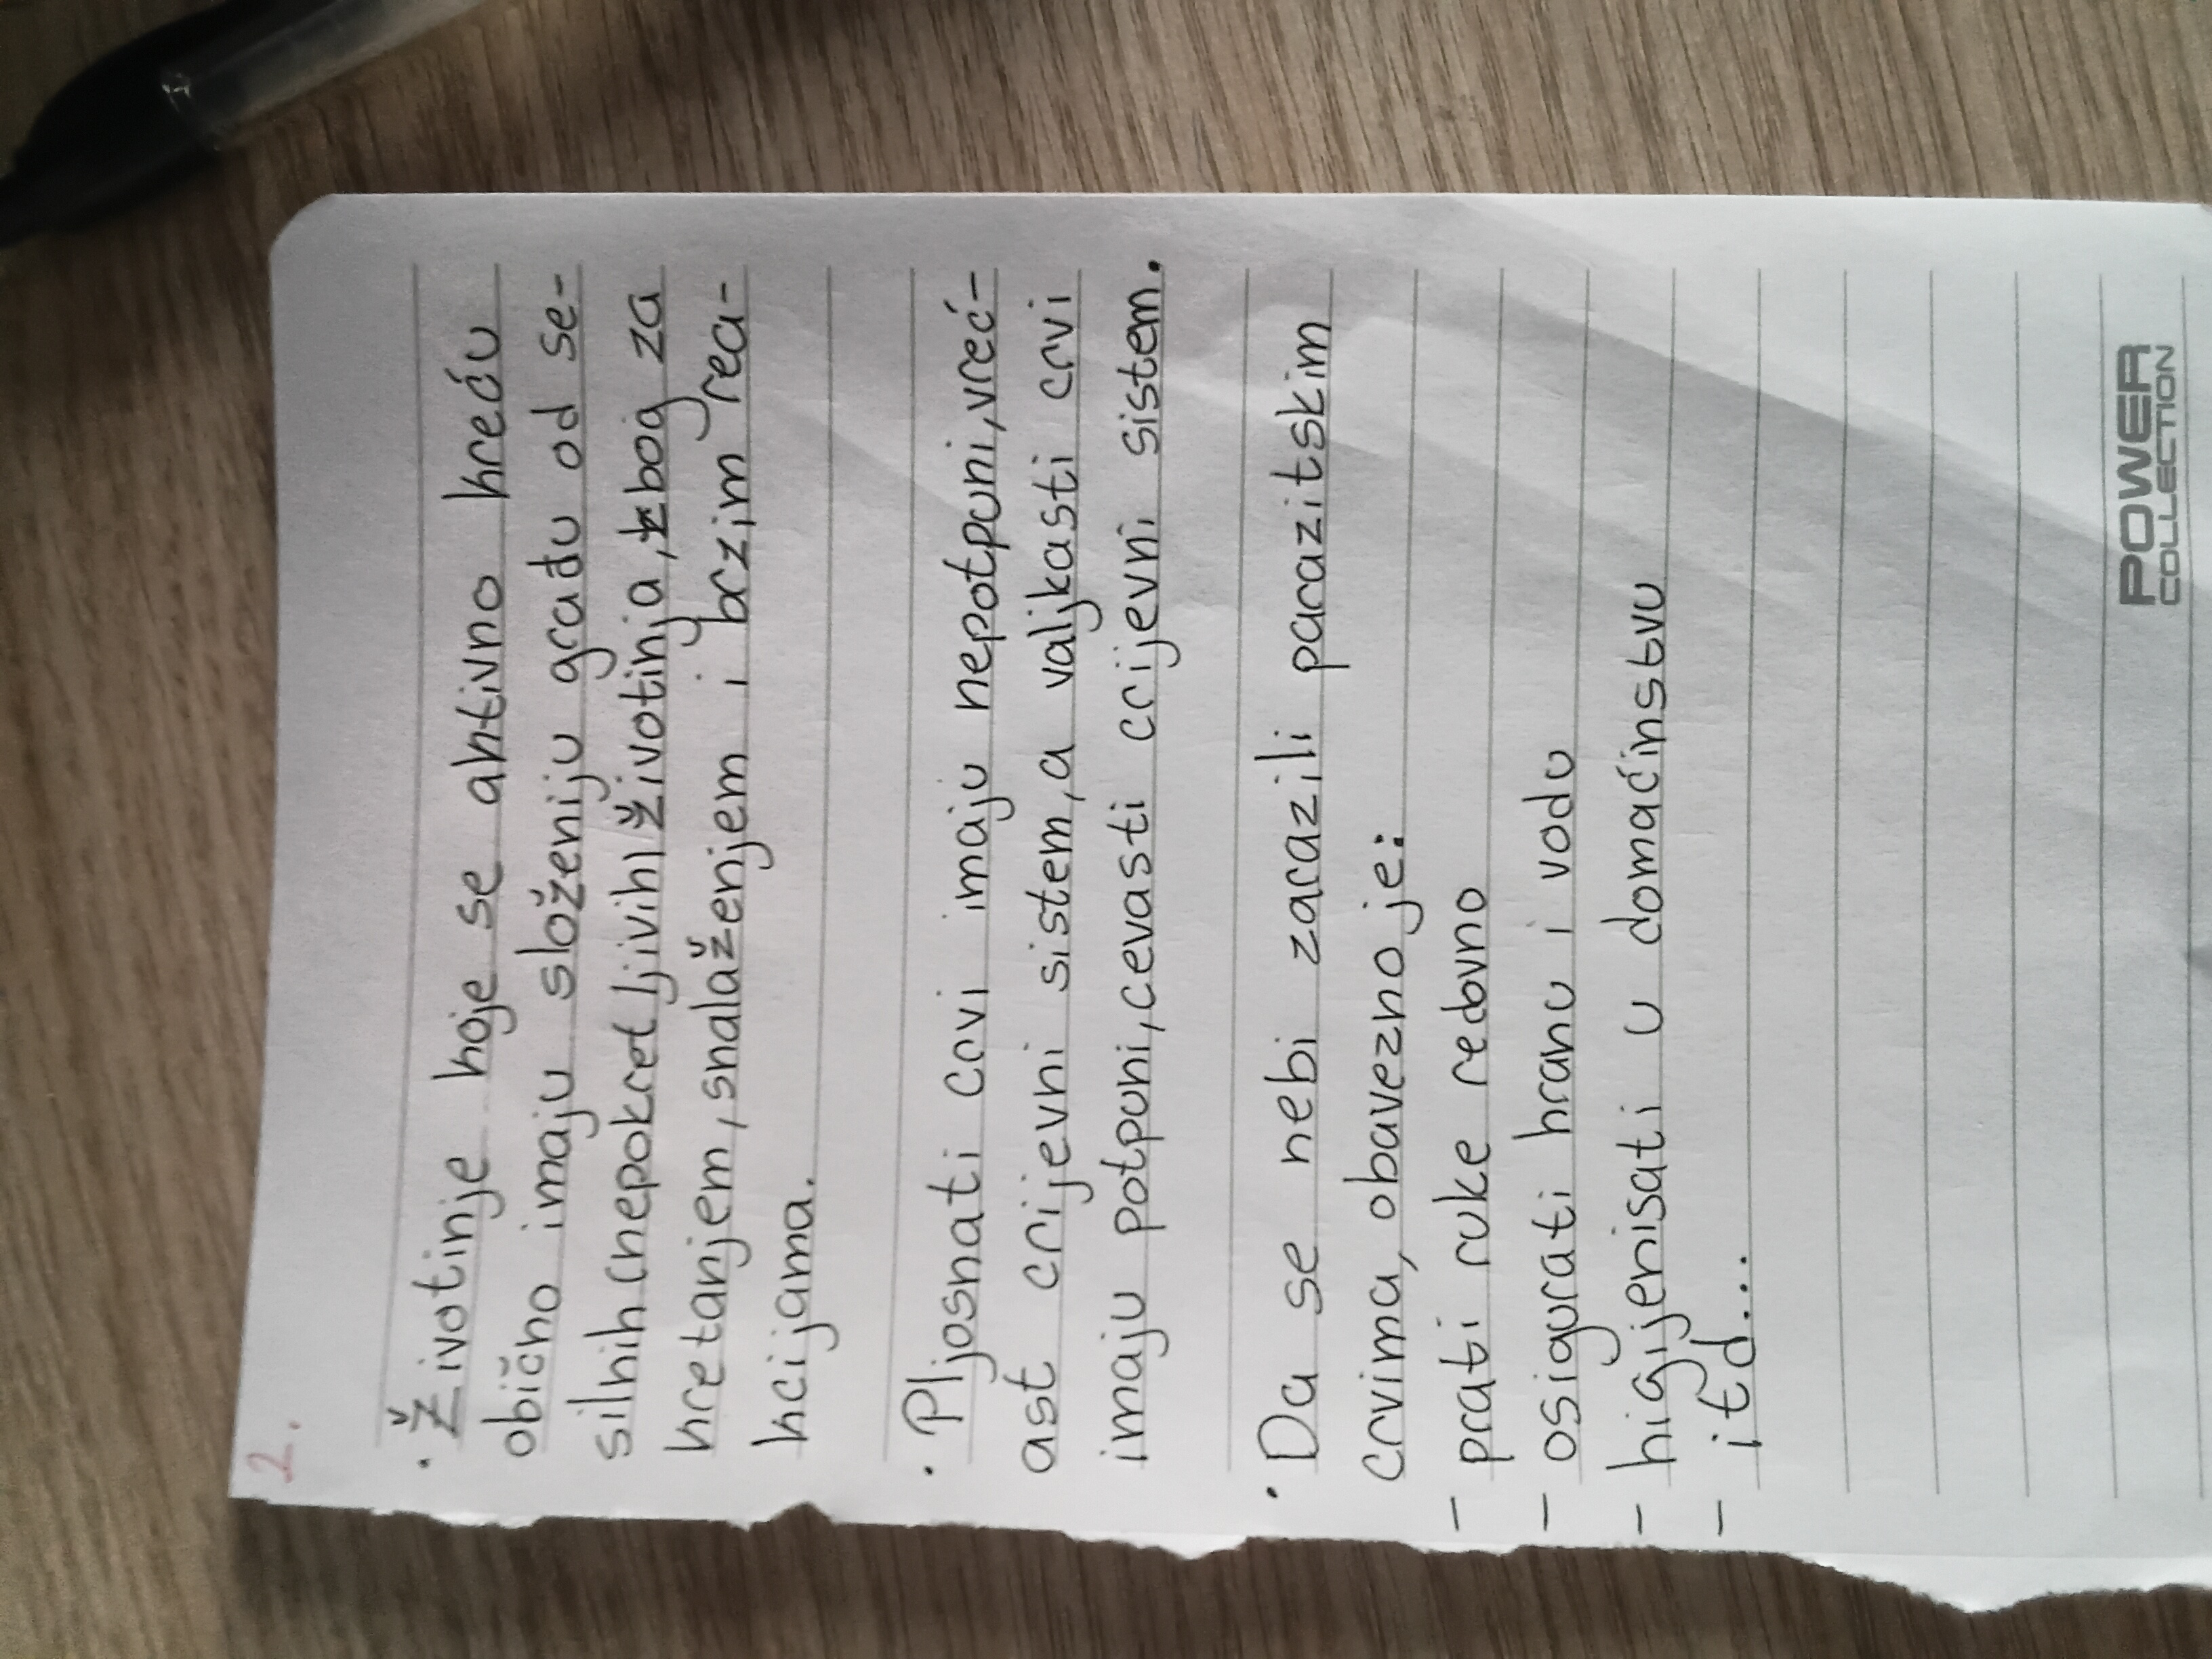 2.
· Životinje koje se aktivno kreću
obično imaju složeniju građu od se-
silnih (nepokretljivih) životinja, zbog za
kretanjem, snalaženjem i brzim rea-
kcijama.
· Pljosnati crvi imaju nepotpuni, vreć-
ast crijevni sistem, a valjkasti crvi
imaju potpuni, cevasti crijevni sistem.
· Da se nebi zarazili parazitskim
crvima, obavezno je:
- prati ruke redovno
- osigurati hranu i vodu
- higijenisati u domaćinstvu
- itd...
POWER
COLLECTION